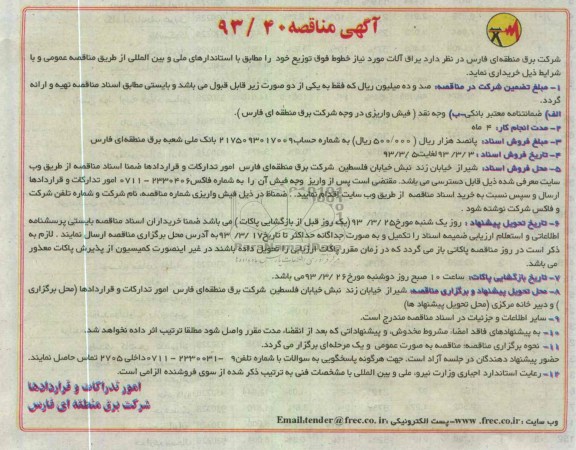 آگهی مناقصه ۴۰ /۹۳
شرکت برق منطقه‌ای فارس در نظر دارد یراق آلات مورد نیاز خطوط فوق توزیع خود را مطابق با استانداردهای ملی و بین المللی از طریق مناقصه عمومی و با
شرایط ذیل خریداری نماید.
۱- مبلغ تضمین شرکت در مناقصه: صد و ده میلیون ریال که فقط به یکی از دو صورت زیر قابل قبول می باشد و بایستی مطابق اسناد مناقصه تهیه و ارائه
گردد.
الف) ضمانتنامه معتبر بانکی-ب) وجه نقد ( فیش واریزی در وجه شرکت برق منطقه ای فارس ).
۲- مدت انجام کار: ۴ ماه
۳- مبلغ فروش اسناد: پانصد هزار ریال (۵۰۰/۰۰۰ ریال) به شماره حساب۲۱۷۵۰۹۳۰۱۷۰۰۹ بانک ملی شعبه برق منطقه‌ای فارس
۴- تاریخ فروش اسناد: ۹۳/۳/۱ لغایت۹۳/۳/۵
۵- محل فروش اسناد: شیراز خیابان زند نبش خیابان فلسطین شرکت برق منطقه‌ای فارس امور تدارکات و قراردادها ضمنا اسناد مناقصه از طریق وب
سایت معرفی شده ذیل قابل دسترسی می باشد. مقتضی است پس از واریز وجه فیش آن را به شماره فاکس۲۳۳۰۴۰۶ - ۰۷۱۱ امور تدارکات و قراردادها
ارسال و سپس نسبت به خرید اسناد مناقصه از طریق وب سایت اقدام نمایید. ضمناً در ذیل فیش واریزی شماره مناقصه، نام شرکت و شماره تلفن شرکت
و فاکس شرکت نوشته شود .
۶- تاریخ تحویل پیشنهاد : روز یک شنبه مورخ۲۵ /۳/ ۹۳ (یک روز قبل از بازگشایی پاکات ) می باشد ضمنا خریداران اسناد مناقصه بایستی پرسشنامه
اطلاعاتی و استعلام ارزیابی ضمیمه اسناد را تکمیل و به صورت جداگانه حداکثر تا تاریخ۱۷ /۳/ ۹۳به آدرس محل برگزاری مناقصه ارسال نمایند . لازم به
ذکر است در روز مناقصه پاکاتی باز می گردد که در زمان مقرر پاکات ارزیابی را تحویل داده باشند در غیر اینصورت کمیسیون از پذیرش پاکات معذور
می باشد.
۷- تاریخ بازگشایی پاکات: ساعت ۱۰ صبح روز دوشنبه مورخ۲۶ /۳/ ۹۳می باشد.
۸- محل تحویل پیشنهاد و برگزاری مناقصه: شیراز خیابان زند نبش خیابان فلسطین شرکت برق منطقه‌ای فارس امور تدارکات و قراردادها (محل برگزاری
) و دبیر خانه مرکزی (محل تحویل پیشنهاد ها)
۹- سایر اطلاعات و جزئیات در اسناد مناقصه مندرج است.
۱۰- به پیشنهادهای فاقد امضا، مشروط مخدوش، و پیشنهاداتی که بعد از انقضاء مدت مقرر واصل شود مطلقا ترتیب اثر داده نخواهد شد.
۱۱- نحوه برگزاری مناقصه: مناقصه به صورت عمومی و یک مرحله‌ای برگزار می گردد.
حضور پیشنهاد دهندگان در جلسه آزاد است. جهت هرگونه پاسخگویی به سوالات با شماره تلفن۹ -۲۳۳۰۰۳۱ - ۰۷۱۱داخلی ۲۷۰۵ تماس حاصل نمایند.
۱۲- رعایت استاندارد اجباری وزارت نیرو، ملی و بین المللی با مشخصات فنی به ترتیب ذکر شده از سوی فروشنده الزامی است.
امور تدارکات و قراردادها
شرکت برق منطقه ای فارس
وب سایت : www.frec.co.ir-پست الکترونیکی :Email.tender@frec.co.ir